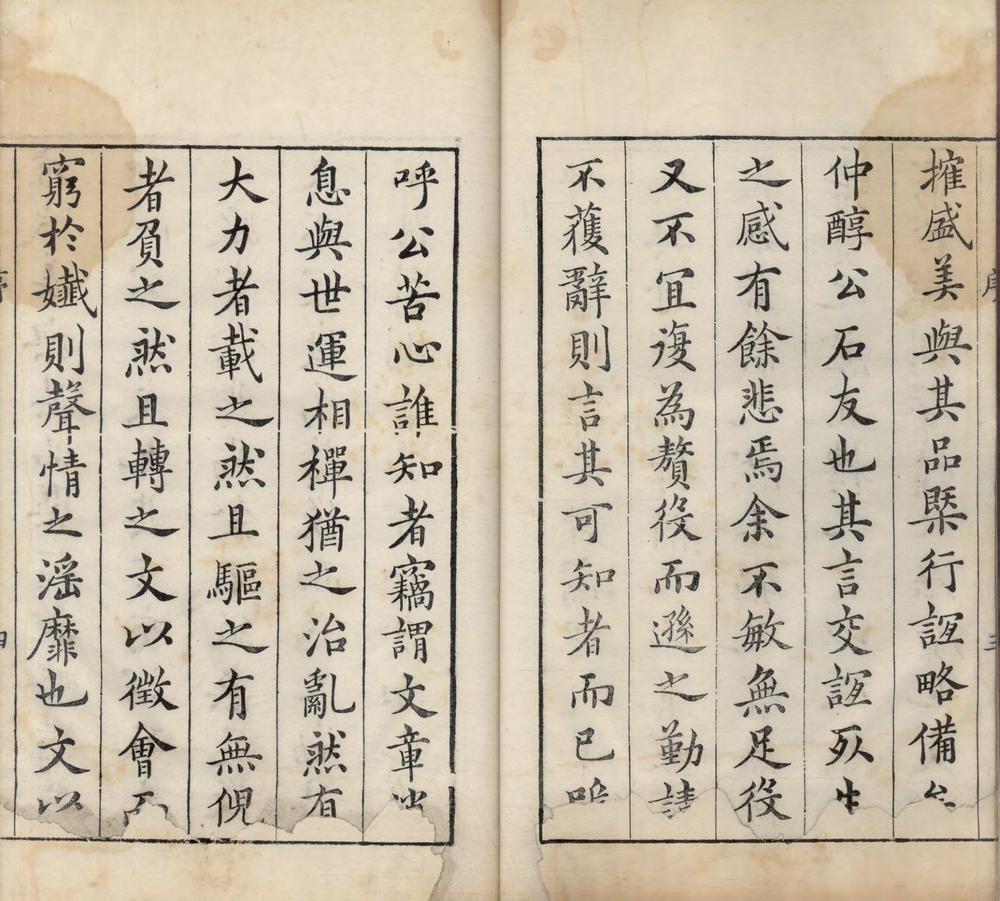 擁盛美與其品槩行誼略備
仲醇公石友也其言交誼死生
之感有餘悲焉余不敏無足役
又不宜復為贅役而遜之勤請
不獲辭則言其可知者而已嗚
呼公苦心誰知者竊謂文章
息與世運相禪猶之治亂然有
大力者載之然且驅之有無倪
者負之然且轉之文以徵會而
窮於孅則聲情之滛靡也文以